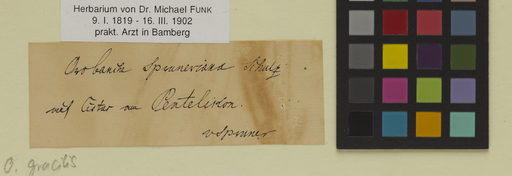 Herbarium von Dr. Michael FUNK
9. I. 1819 - 16. III. 1902
prakt. Arzt in Bamberg
Orobanche Spruneriana Schultz
auf Cistus am Pentelikon.
vSpruner
O. gracilis